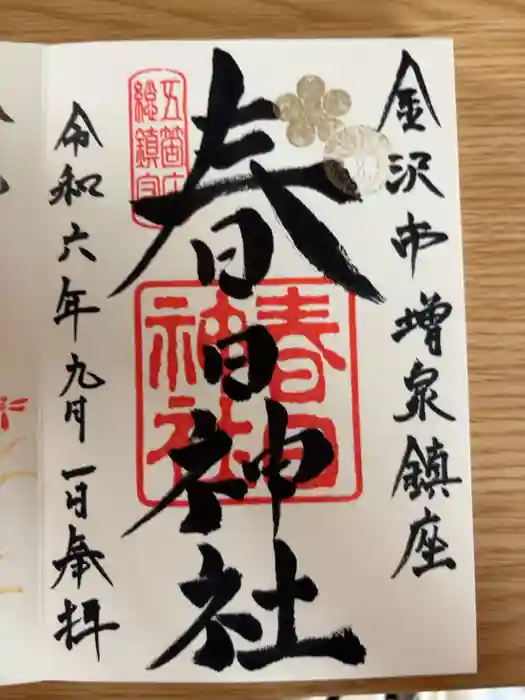 金沢市増泉鎮座
春日神社
春日神社
五箇庄
総鎮守
令和六年九月一日奉拝